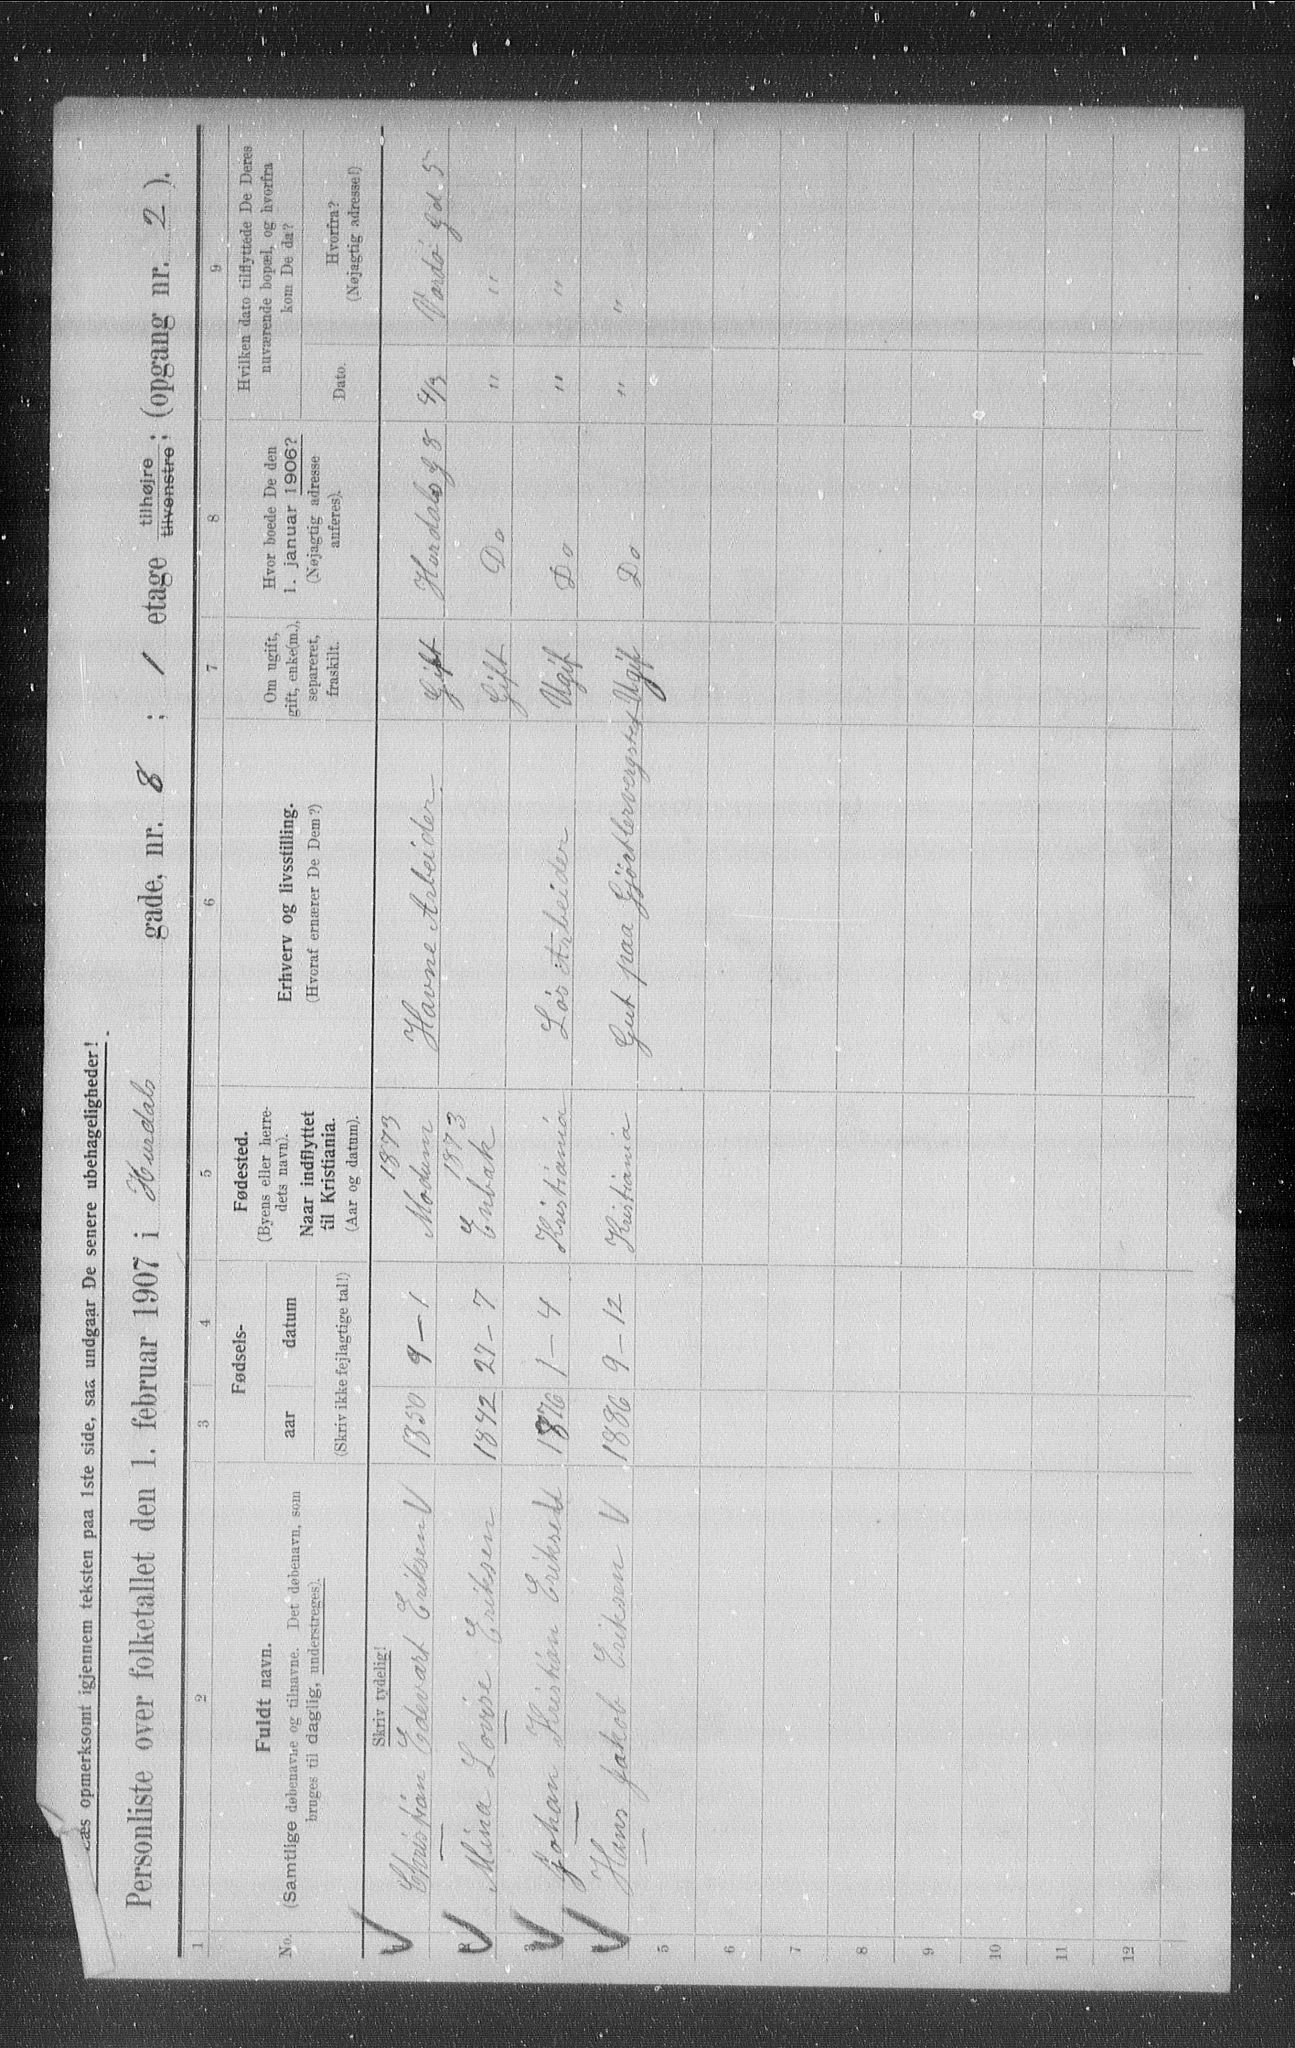 Læs opmerksomt igjennem teksten paa 1ste side, saa undgaar De senere ubehageligheder!
Personliste over folketallet den 1. februar 1907 i Hurdals gade, nr. 8 ; 1 etage tilhøjre, tilvenstre; (opgang nr. 2 ).
1 2 3 4 5 6 7 8 9
No.
Fuldt navn.
(Samtlige døbenavne og tilnavne. Det døbenavn, som
bruges til daglig, understreges).
Fødsels-
aar datum
(Skriv ikke fejlagtige tal!)
Fødested.
(Byens eller herre-
dets navn).
Naar indflyttet
til Kristiania.
(Aar og datum).
Erhverv og livsstilling.
(Hvoraf ernærer De Dem?)
Om ugift,
gift, enke(m.),
separeret,
fraskilt.
Hvor boede De den
1. januar 1906?
(Nøjagtig adresse
anføres).
Hvilken dato tilflyttede De Deres
nuværende bopæl, og hvorfra
kom De da?
Dato.
Hvorfra?
(Nøjagtig adresse!)
Skriv tydelig!
1873
Christian Edvart Eriksen V 1850 9-1 Modum Havne Arbeider Gift Hurdals g 8 4/3 Vardø gd 5
1873
2 Mina Lovise Eriksen 1842 27-7 Enbak Gift Do " "
3 Johan Kristian Eriksen 1876 1-4 Kristiania Løs Arbeider Ugif Do " "
Hans Jakob Eriksen V 1886 9-12 Kristiania Gut paa Ugif Do " "
5
6
7
8
9
10
11
12